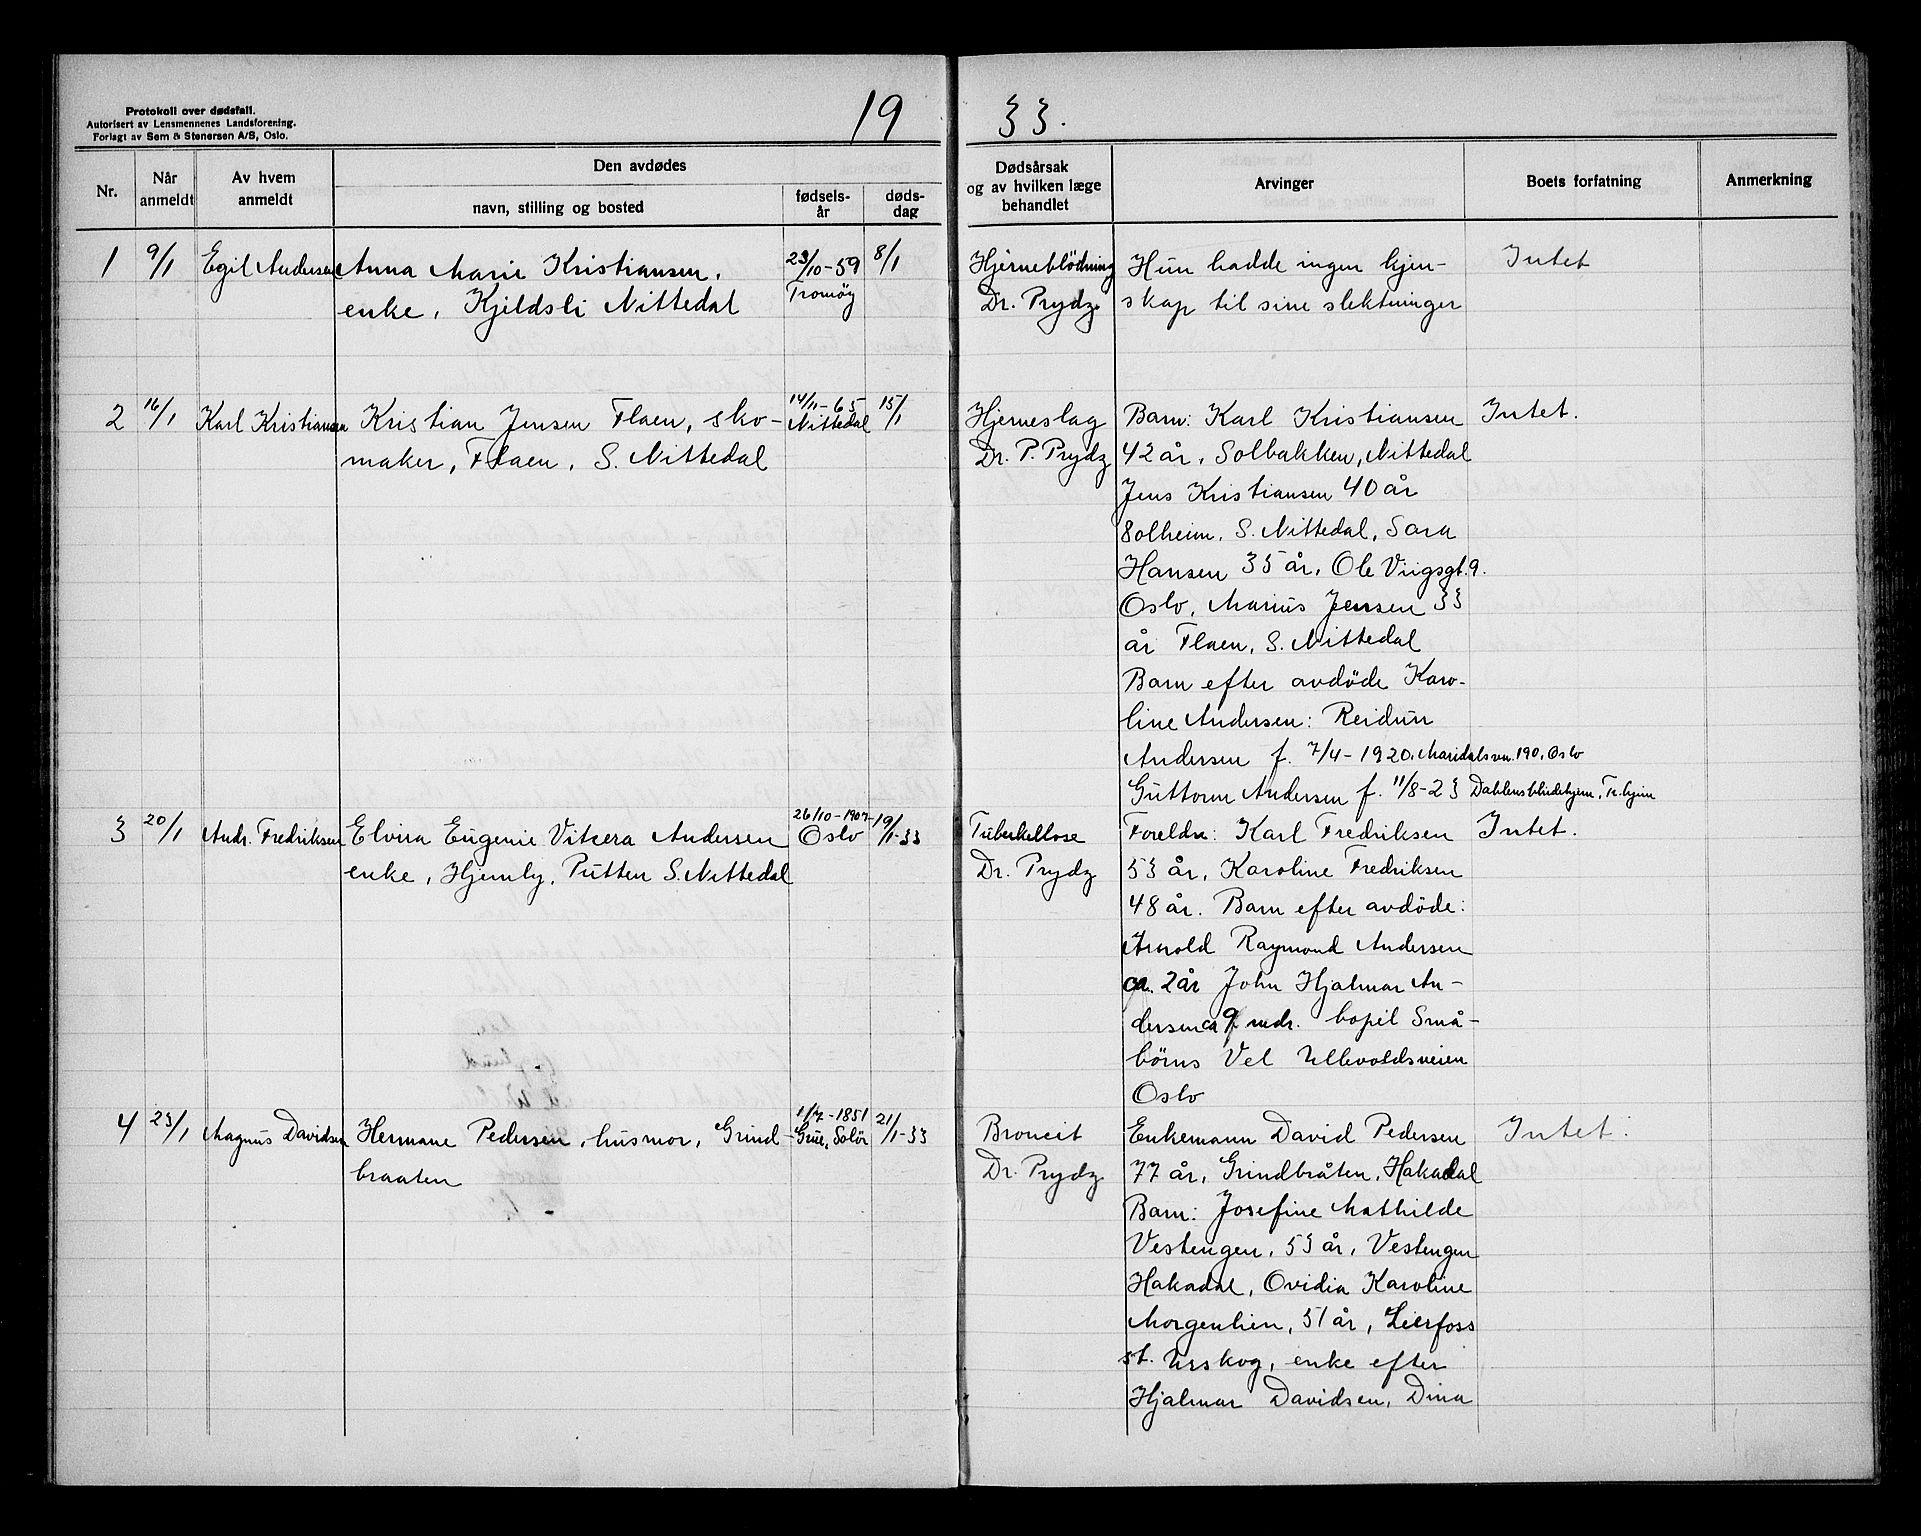 Protokoll over dødsfall.
Autorisert av Lensmennenes Landsforening.
Forlagt av Sem & Stenersen A/S, Oslo.
19 33.
Nr.
Når anmeldt
Av hvem anmeldt
Den avdødes
navn, stilling og bosted
fødsels-
år
døds-
dag
Dødsårsak
og av hvilken læge
behandlet
Arvinger
Boets forfatning
Anmerkning
1 9/1 Egil Andersen Anna Marie Kristiansen, 23/10-59 8/1
enke, Kjeldsli Nittedal Tromøy
Hjerneblödning Hun hadde ingen kjen- Intet
Dr. Prydz skap til sine slektninger
2 16/1 Karl Kristiansen Kristian Jensen Flaen, sko- 14/11-65 15/1
maker, Flaen, S. Nittedal Nittedal
Hjerneslag Barn: Karl Kristiansen Intet.
Dr. P. Prydz 42 år, Solbakken, Nittedal
Jens Kristiansen 40 år
Solheim, S. Nittedal, Sara
Hansen 35 år, Ole Viigsgt. 9.
Oslo, Marius Jensen 33
år Flaen, S. Nittedal
Barn efter avdöde Karo-
line Andersen: Reidun
Andersen f. 7/4-1920, Maridalsvn. 190, Oslo
Guttorm Andersen f. 11/8-23 Dahlensblidehjem, Tr.hjem
3 20/1 Andr. Fredriksen Elvira Eugenie Vitcera Andersen 26/10-1907 19/1-33
enke, Hjemly, Putten S. Nittedal Oslo
Tuberkellose Foreldre: Karl Fredriksen Intet.
Dr. Prydz 53 år, Karoline Fredriksen
48 år. Barn efter avdöde:
Arnold Raymond Andersen
ca. 2 år John Hjalmar An-
dersen ca 9 mdr. bopel Små-
börns Vel Ullevoldsveien
Oslo
4 23/1 Magnus Davidsen Hermane Pedersen, husmor, Grind- 1/7-1851 21/1-33
braaten Grue, Solör
Broncit Enkemann David Pedersen Intet.
Dr. Prydz 77 år, Grindbråten, Hakadal
Barn: Josefine Mathilde
Vestengen, 53 år, Vestengen
Hakadal, Ovidia Karoline
Morgenlien, 51 år, Lierfoss
st. Urskog, enke efter
Hjalmar Davidsen, Dina